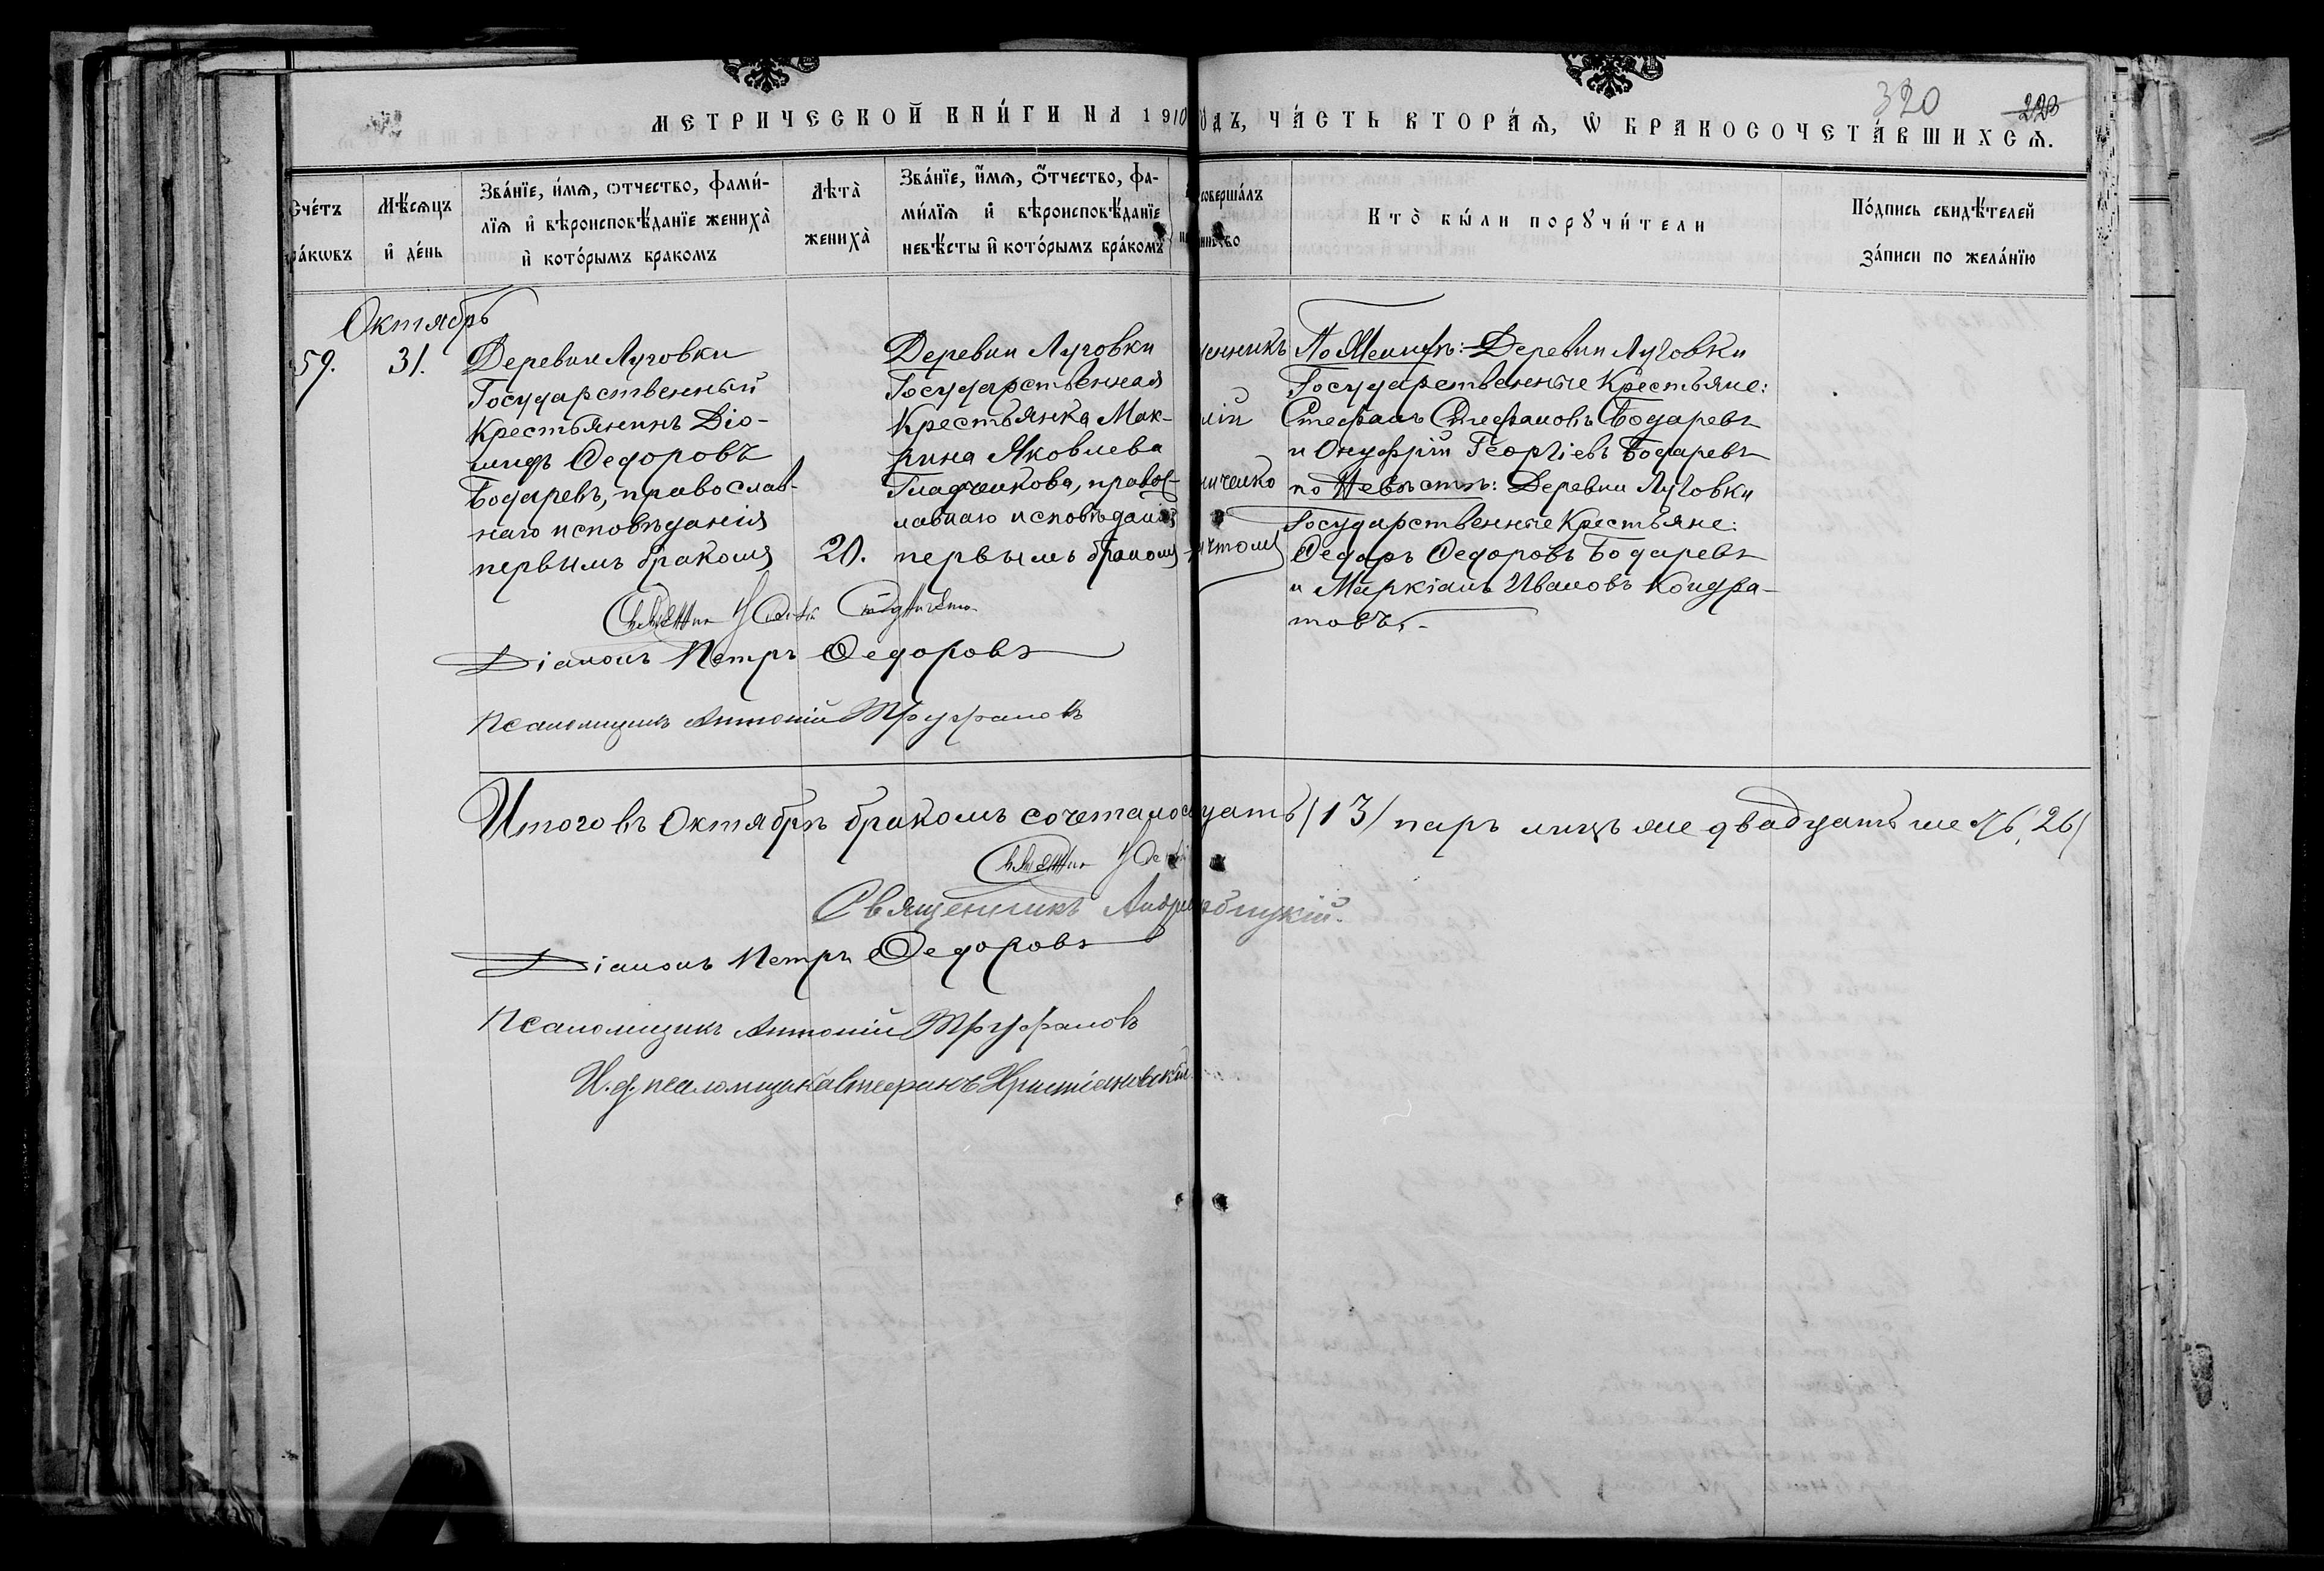 320 220
МЕТРИЧЕСКОЙ КНИ́ГИ НА 1910 ОДЪ, ЧА́СТЬ ВТОРА́Ѧ, Ѡ БРАКОСОЧЕТА́ВШИХСѦ.
Счéтъ
ра́кѡвъ
Мѣ́сѧцъ
и҆ де́нь
Зва́нїе, и҆́мѧ, ѻтчество, фами́-
лїѧ и҆ вѣроисповѣ́данїе жениха̀
и҆ кото́рымъ бракомъ
Лѣта̀
жениха̀
Зва́нїе, и҆́мѧ, ѻ҆́тчество, фа-
ми́лїѧ и҆ вѣроисповѣ́данїе
невѣ́сты и҆ кото́рымъ бра́комъ
соверша́лъ
Кто̀ бы́ли порꙋчи́тели
По́дпись свидѣ́телей
за́писи по жела́нїю
Октябрь
59.
31.
Деревни Луговки
Государственный
Крестьянинъ Діо-
мидъ Ѳедоровъ
Бодаревъ, православ-
наго исповѣданія
первымъ бракомъ
20.
Деревни Луговки
Государственная
Крестьянка Мак-
рина Яковлева
Гладченкова, правос-
лавнаго исповѣданія
первымъ бракомъ
щенникъ
лій
ниченко
ичтомъ
По Женихѣ: Деревни Луговки
Государственные Крестьяне:
Стефанъ Стефановъ Бодаревъ
и Онуфрій Георгіевъ Бодаревъ
по Невѣстѣ: Деревни Луговки
Государственные Крестьяне:
Ѳедоръ Ѳедоровъ Бодаревъ
и Маркіанъ Ивановъ Кондра-
товъ.-
Діаконъ Петръ Ѳедоровъ
Псаломщикъ Антоній Труфановъ
Итого въ Октябрѣ бракомъ сочеталось дцать (13) паръ лицъ же двадцать шесть (26)
Священникъ Андрей облуцкій.
Діаконъ Петръ Ѳедоровъ
Псаломщикъ Антоній Труфановъ
И. д. псаломщика Стефанъ Христіановскій